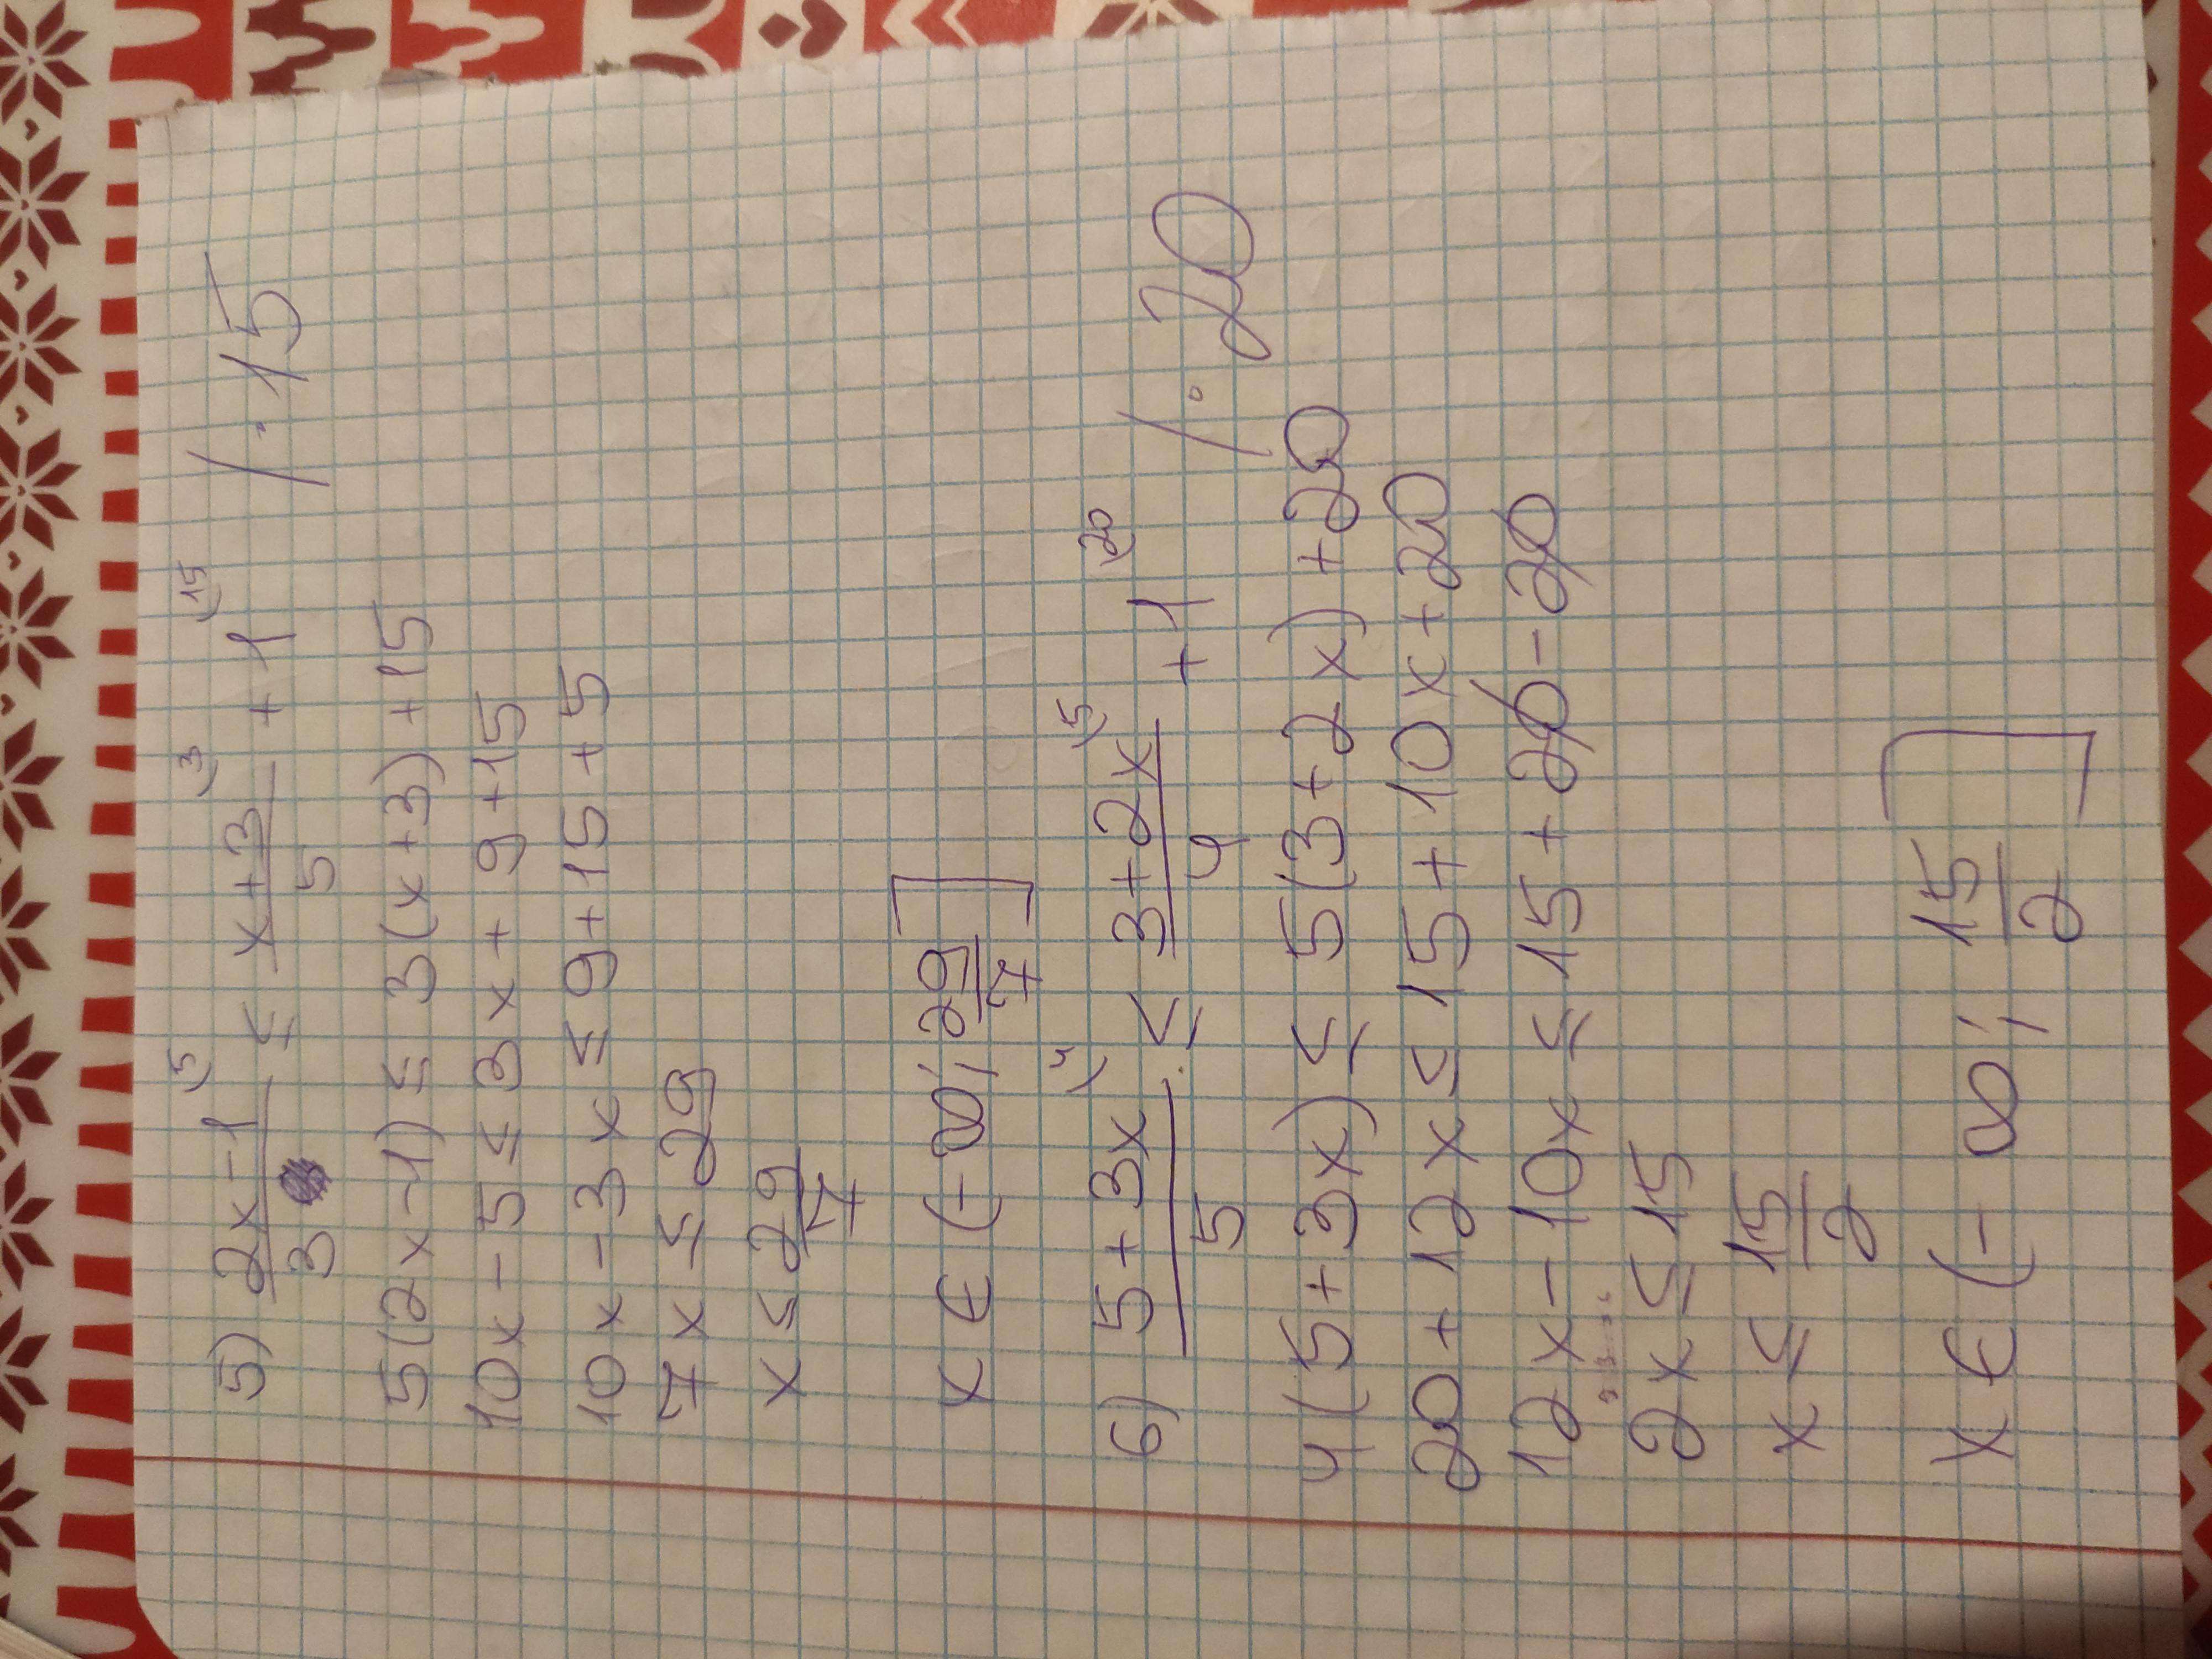 5) (2x-1)/3 (5 ≤ (x+3)/5 (3 + 1 (15 / · 15
5(2x-1) ≤ 3(x+3)+15
10x-5 ≤ 3x+9+15
10x-3x ≤ 9+15+5
7x ≤ 29
x ≤ 29/7
x ∈ (-∞; 29/7]
6) (5+3x)/5 (4 ≤ (3+2x)/4 (5 + 1 (20 / · 20
4(5+3x) ≤ 5(3+2x)+20
20+12x ≤ 15+10x+20
12x-10x ≤ 15+20-20
2x ≤ 15
x ≤ 15/2
x ∈ (-∞; 15/2]